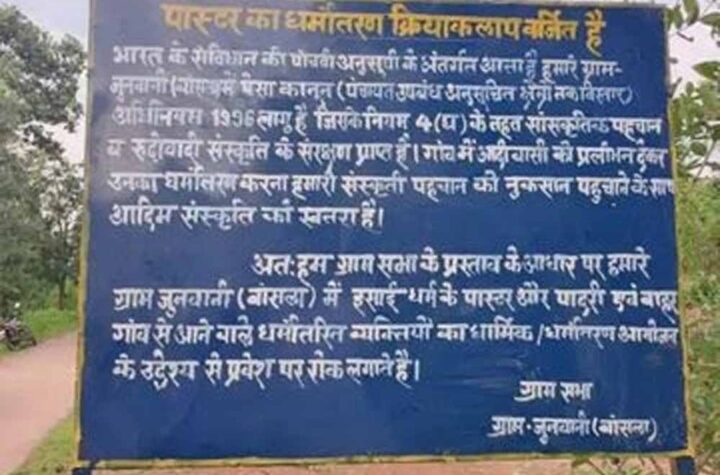 पास्टर का धर्मांतरण क्रियाकलाप वर्जित है
भारत के संविधान की पांचवी अनुसूची के अंतर्गत आता है हमारे ग्राम-
जुनवानी (बांसला) में पेसा कानून (पंचायत उपबंध अनुसूचित क्षेत्रों तक विस्तार)
अधिनियम 1996 लागू है जिसके नियम 4 (घ) के तहत सांस्कृतिक पहचान
व रूढ़ीवादी संस्कृति के संरक्षण प्राप्त है। गांव में आदीवासी को प्रलोभन देकर
उनका धर्मांतरण करना हमारी संस्कृती पहचान को नुकसान पहुचाने के साथ
आदिम संस्कृति को खतरा है।
अतः हम ग्राम सभा के प्रस्ताव के आधार पर हमारे
ग्राम जुनवानी (बांसला) में इसाई धर्म के पास्टर और पादरी एवं बाहर
गांव से आने वाले धर्मांतरित व्यक्तियों का धार्मिक / धर्मांतरण आयोजन
के उद्देश्य से प्रवेश पर रोक लगाते है।
ग्राम सभा
ग्राम - जुनवानी (बांसला)